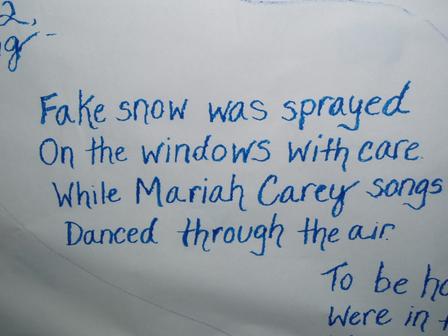 2,
g
Fake snow was sprayed
On the windows with care.
While Mariah Carey songs
Danced through the air.
To be
were in